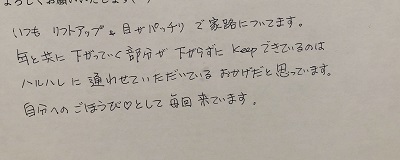 よろしくお願いいたします
いつも リフトアップ & 目がパッチリ で 家路についてます。
年と共に 下がっていく 部分が 下がらずに keep できているのは
ハルハレに 通わせていただいている おかげだと 思っています。
自分への ごほうび♡として 毎回 来ています。